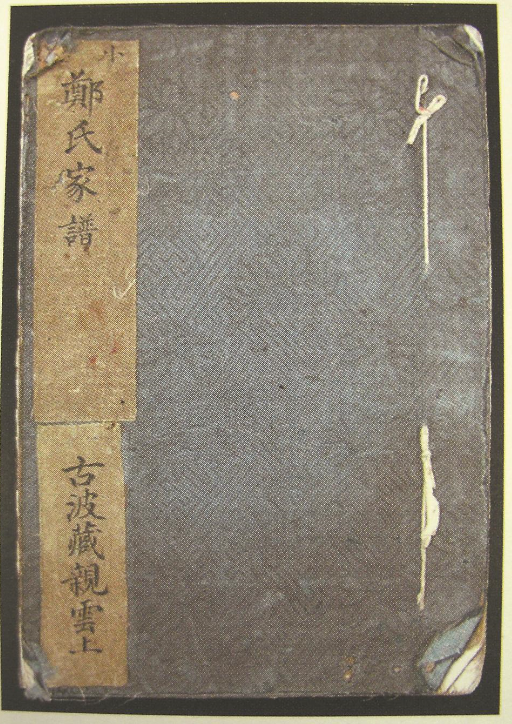 小
鄭氏家譜
古波藏親雲上